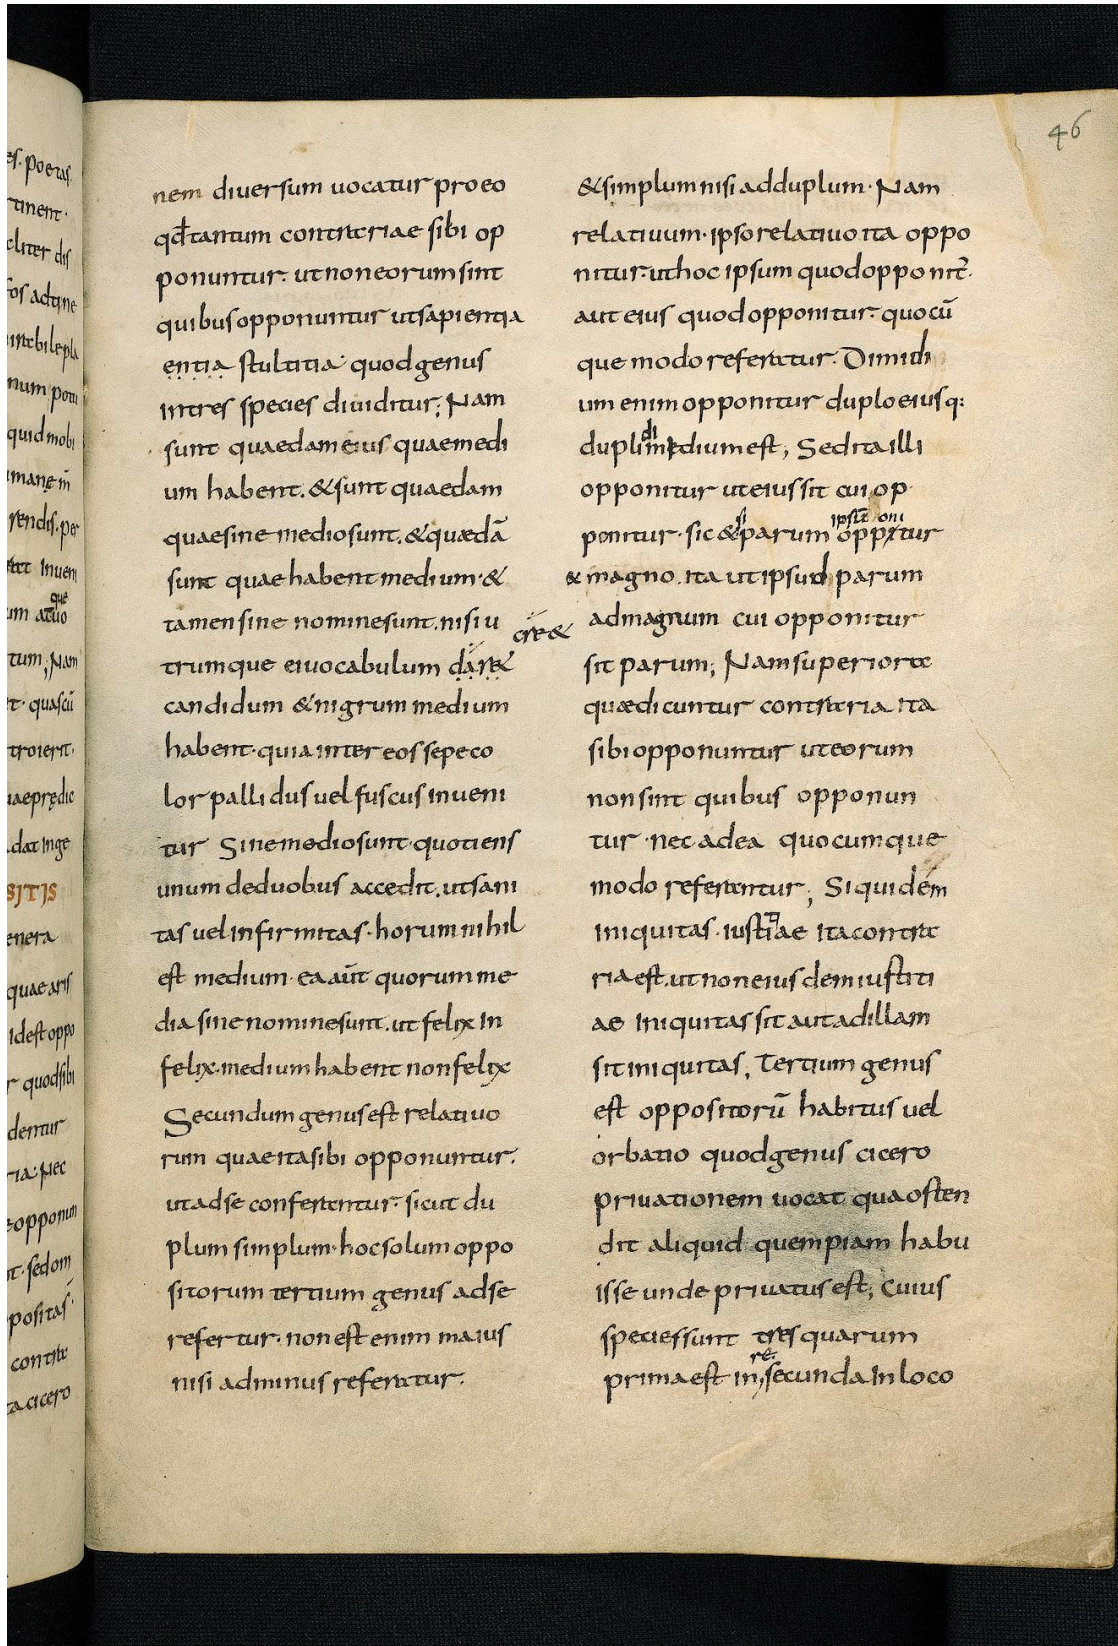 46
es. poetas.
tinent.
cliter dis
num potu
quid mobi
rendis. per
que
tum; Nam
t. quascū
troierit.
iaepredic
dat inge
SITIS
enera
quae aris
id est oppo
r quod sibi
dentur
ria. Nec
opponun
it. sedom
positas
contra
ta cicero
nem diuersum uocatur pro eo
qđ tantum contrariae sibi op
ponuntur. ut non eorum sint
quibus opponuntur ut sapientia
entia stultitia. quod genus
in tres species diuiditur; Nam
sunt quaedam eius quae medi
um habent. & sunt quaedam
quae sine medio sunt. & quædā
sunt quae habent medium. &
tamen sine nomine sunt. nisi u
trumque ei uocabulum dare&
cre&
candidum & nigrum medium
habent. quia inter eos sepe co
lor pallidus uel fuscus inueni
tur Sine medio sunt. quotiens
unum de duobus accedit. ut sani
tas uel infirmitas. horum nihil
est medium. ea aūt quorum me
dia sine nomine sunt. ut felix in
felix. medium habent non felix
Secundum genus est relatiuo
rum quae ita sibi opponuntur.
ut ad se conferantur. sicut du
plum simplum. hoc solum oppo
sitorum tertium genus ad se
refertur. non est enim maius
nisi ad minus referatur.
& simplum nisi ad duplum. Nam
relatiuum. ipso relatiuo ita oppo
nitur. ut hoc ipsum quod opponit̄.
aut eius quod opponitur. quocū
que modo referatur. Dimidi
um enim opponitur duplo eiusq:
di
dupli medium est; Sed ita illi
opponitur ut eius sit cui op
si ipsū oni
ponitur. sic & parum oppitur
& magno. ita ut ipsud parum
ad magnum cui opponitur
sit parum; Nam superiora
quæ dicuntur contraria ita
sibi opponuntur ut eorum
non sint quibus opponun
tur. nec ad ea quocumque
modo referantur; Siquidem
iniquitas. iustiae ita contra
ria est. ut non eiusdem iustiti
ae iniquitas sit aut ad illam
sit iniquitas; Tertium genus
est oppositorū habitus uel
orbatio quod genus cicero
priuationem uocat qua osten
dit aliquid quempiam habu
isse unde priuatus est; Cuius
species sunt tres quarum
re.
prima est in, secunda in loco